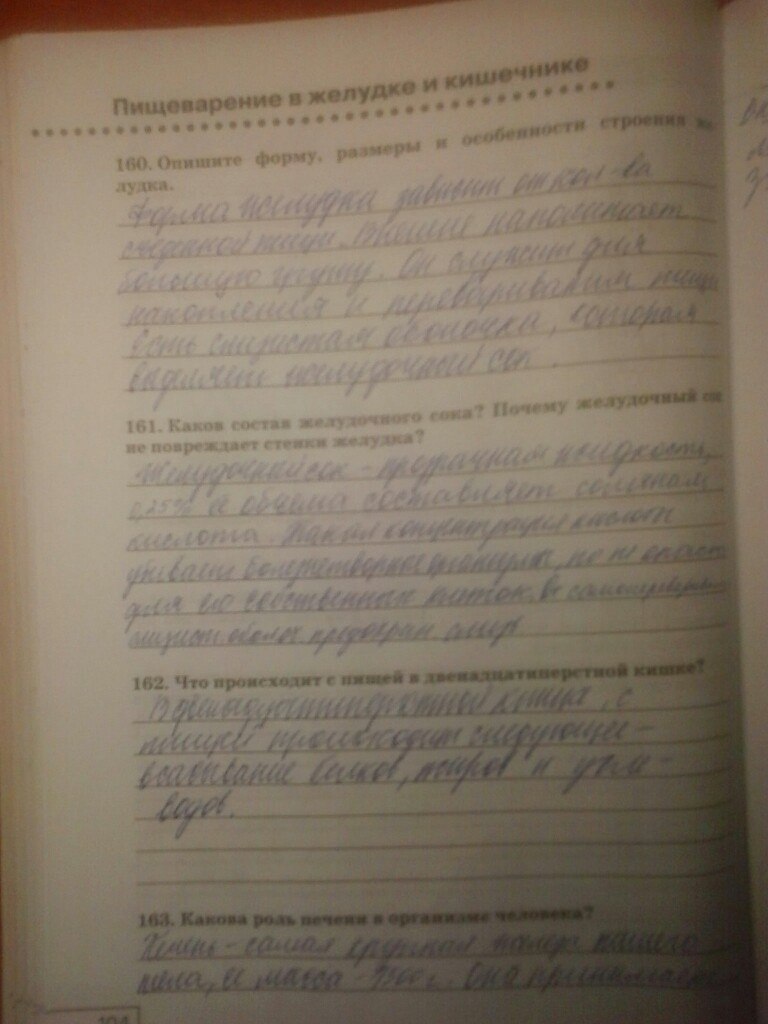 Пищеварение в желудке и кишечнике
160. Опишите форму, размеры и особенности строения же
лудка.
Форма желудка зависит от кол-ва
съеденной пищи. Внешне напоминает
большую грушу. Он служит для
накопления и переваривания пищи
Есть слизистая оболочка, которая
выделяет желудочный сок.
161. Каков состав желудочного сока? Почему желудочный со
не повреждает стенки желудка?
Желудочный сок - прозрачная жидкость,
0,25% объема составляет соляная
кислота. Такая концентрация кислоты
убивает болезнетворные но не опасна
для его собственных От самоперевари
слизист оболоч предохран
162. Что происходит с пищей в двенадцатиперстной кишке?
В двенадцатиперстной кишке, с
пищей происходит следующее -
всасывание белков, жиров и угле-
водов.
163. Какова роль печени в организме человека?
Печень - самая крупная железа нашего
тела, её масса 1500 г. Она
104